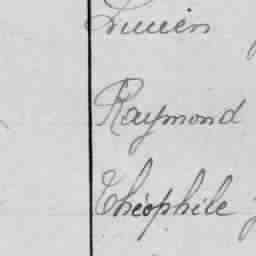 Lucien
Raymond
Théophile